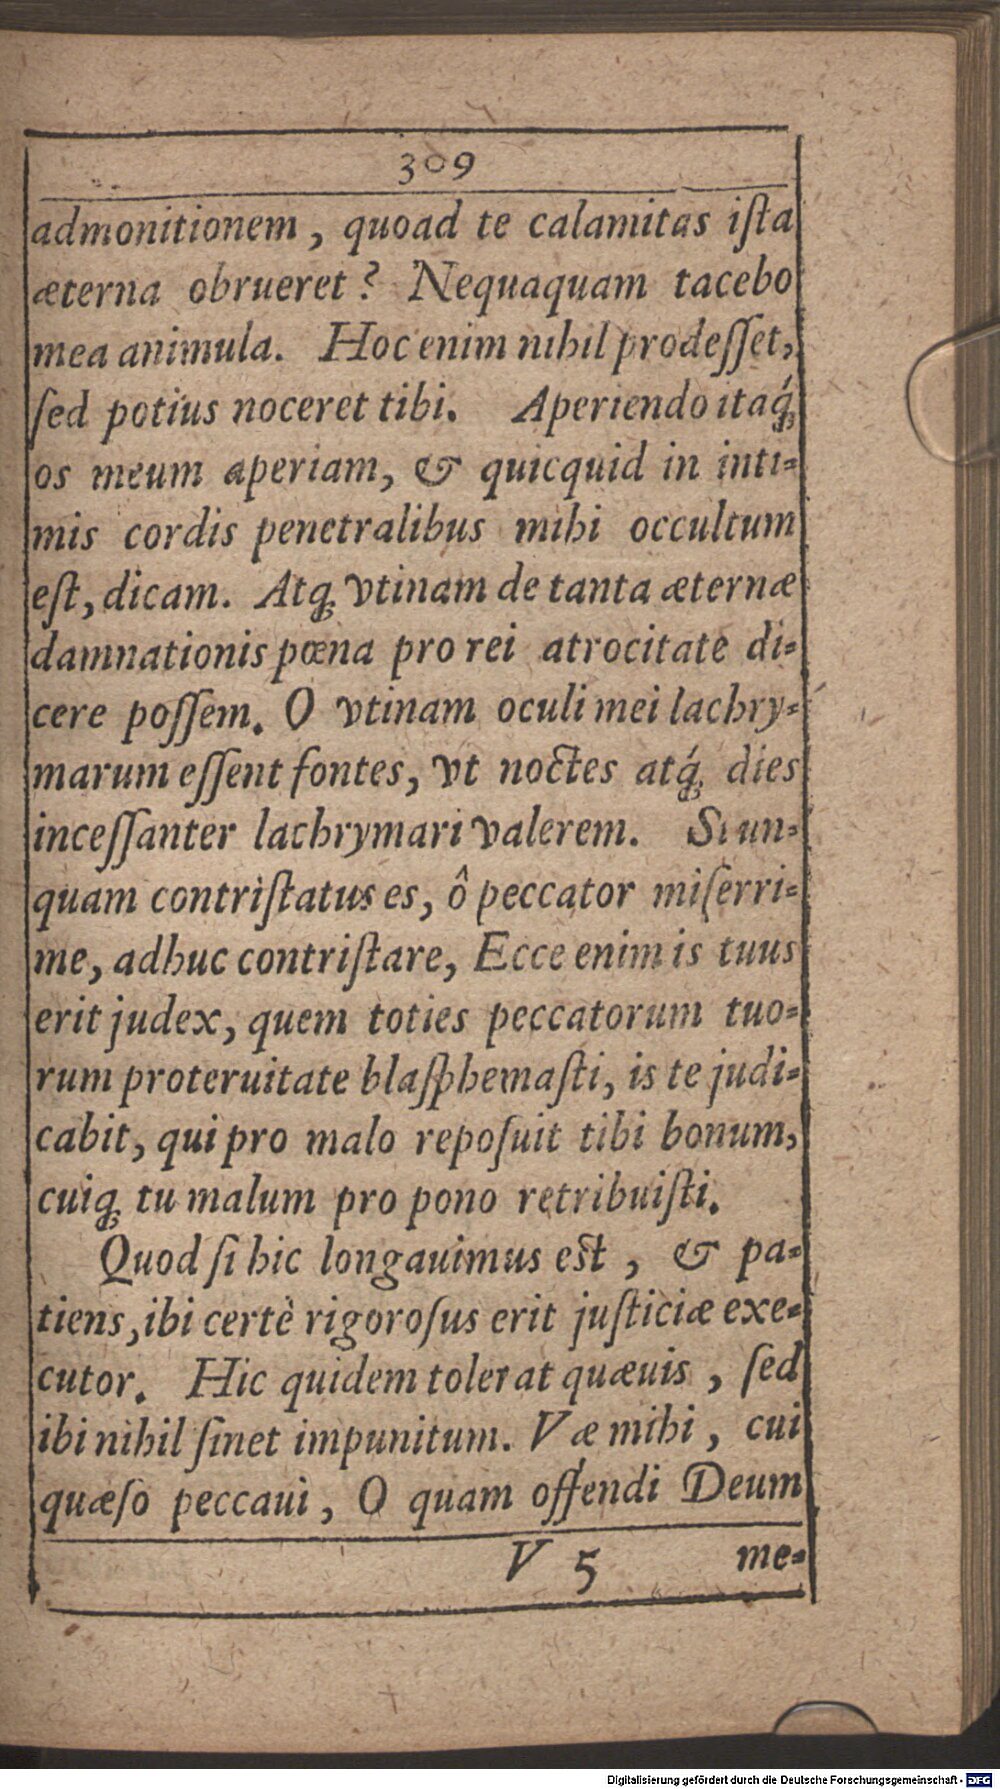 309
admonitionem, quoad te calamitas iſta
æterna obrueret? Nequaquam tacebo
mea animula. Hoc enim nihil prodeſſet,
ſed potius noceret tibi. Aperiendo itaq́;
os meum aperiam, & quicquid in inti-
mis cordis penetralibus mihi occultum
eſt, dicam. Atq; vtinam de tanta æternæ
damnationis pœna pro rei atrocitate di-
cere poſſem. O vtinam oculi mei lachry-
marum eſſent fontes, vt noctes atq́; dies
inceſſanter lachrymari valerem. Si un-
quam contriſtatus es, ô peccator miſerri-
me, adhuc contriſtare, Ecce enim is tuus
erit judex, quem toties peccatorum tuo-
rum proteruitate blaſphemaſti, is te judi-
cabit, qui pro malo repoſuit tibi bonum,
cuiq; tu malum pro pono retribuiſti.
Quod ſi hic longauimus eſt, & pa-
tiens, ibi certè rigoroſus erit juſticiæ exe-
cutor. Hic quidem tolerat quæuis, ſed
ibi nihil ſinet impunitum. Væ mihi, cui
quæſo peccaui, O quam offendi Deum
V 5 me-
Digitalisierung gefördert durch die Deutsche Forschungsgemeinschaft - DFG